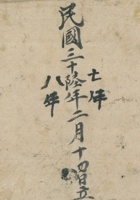 民國三十陸年二月十四日立
七年
八年